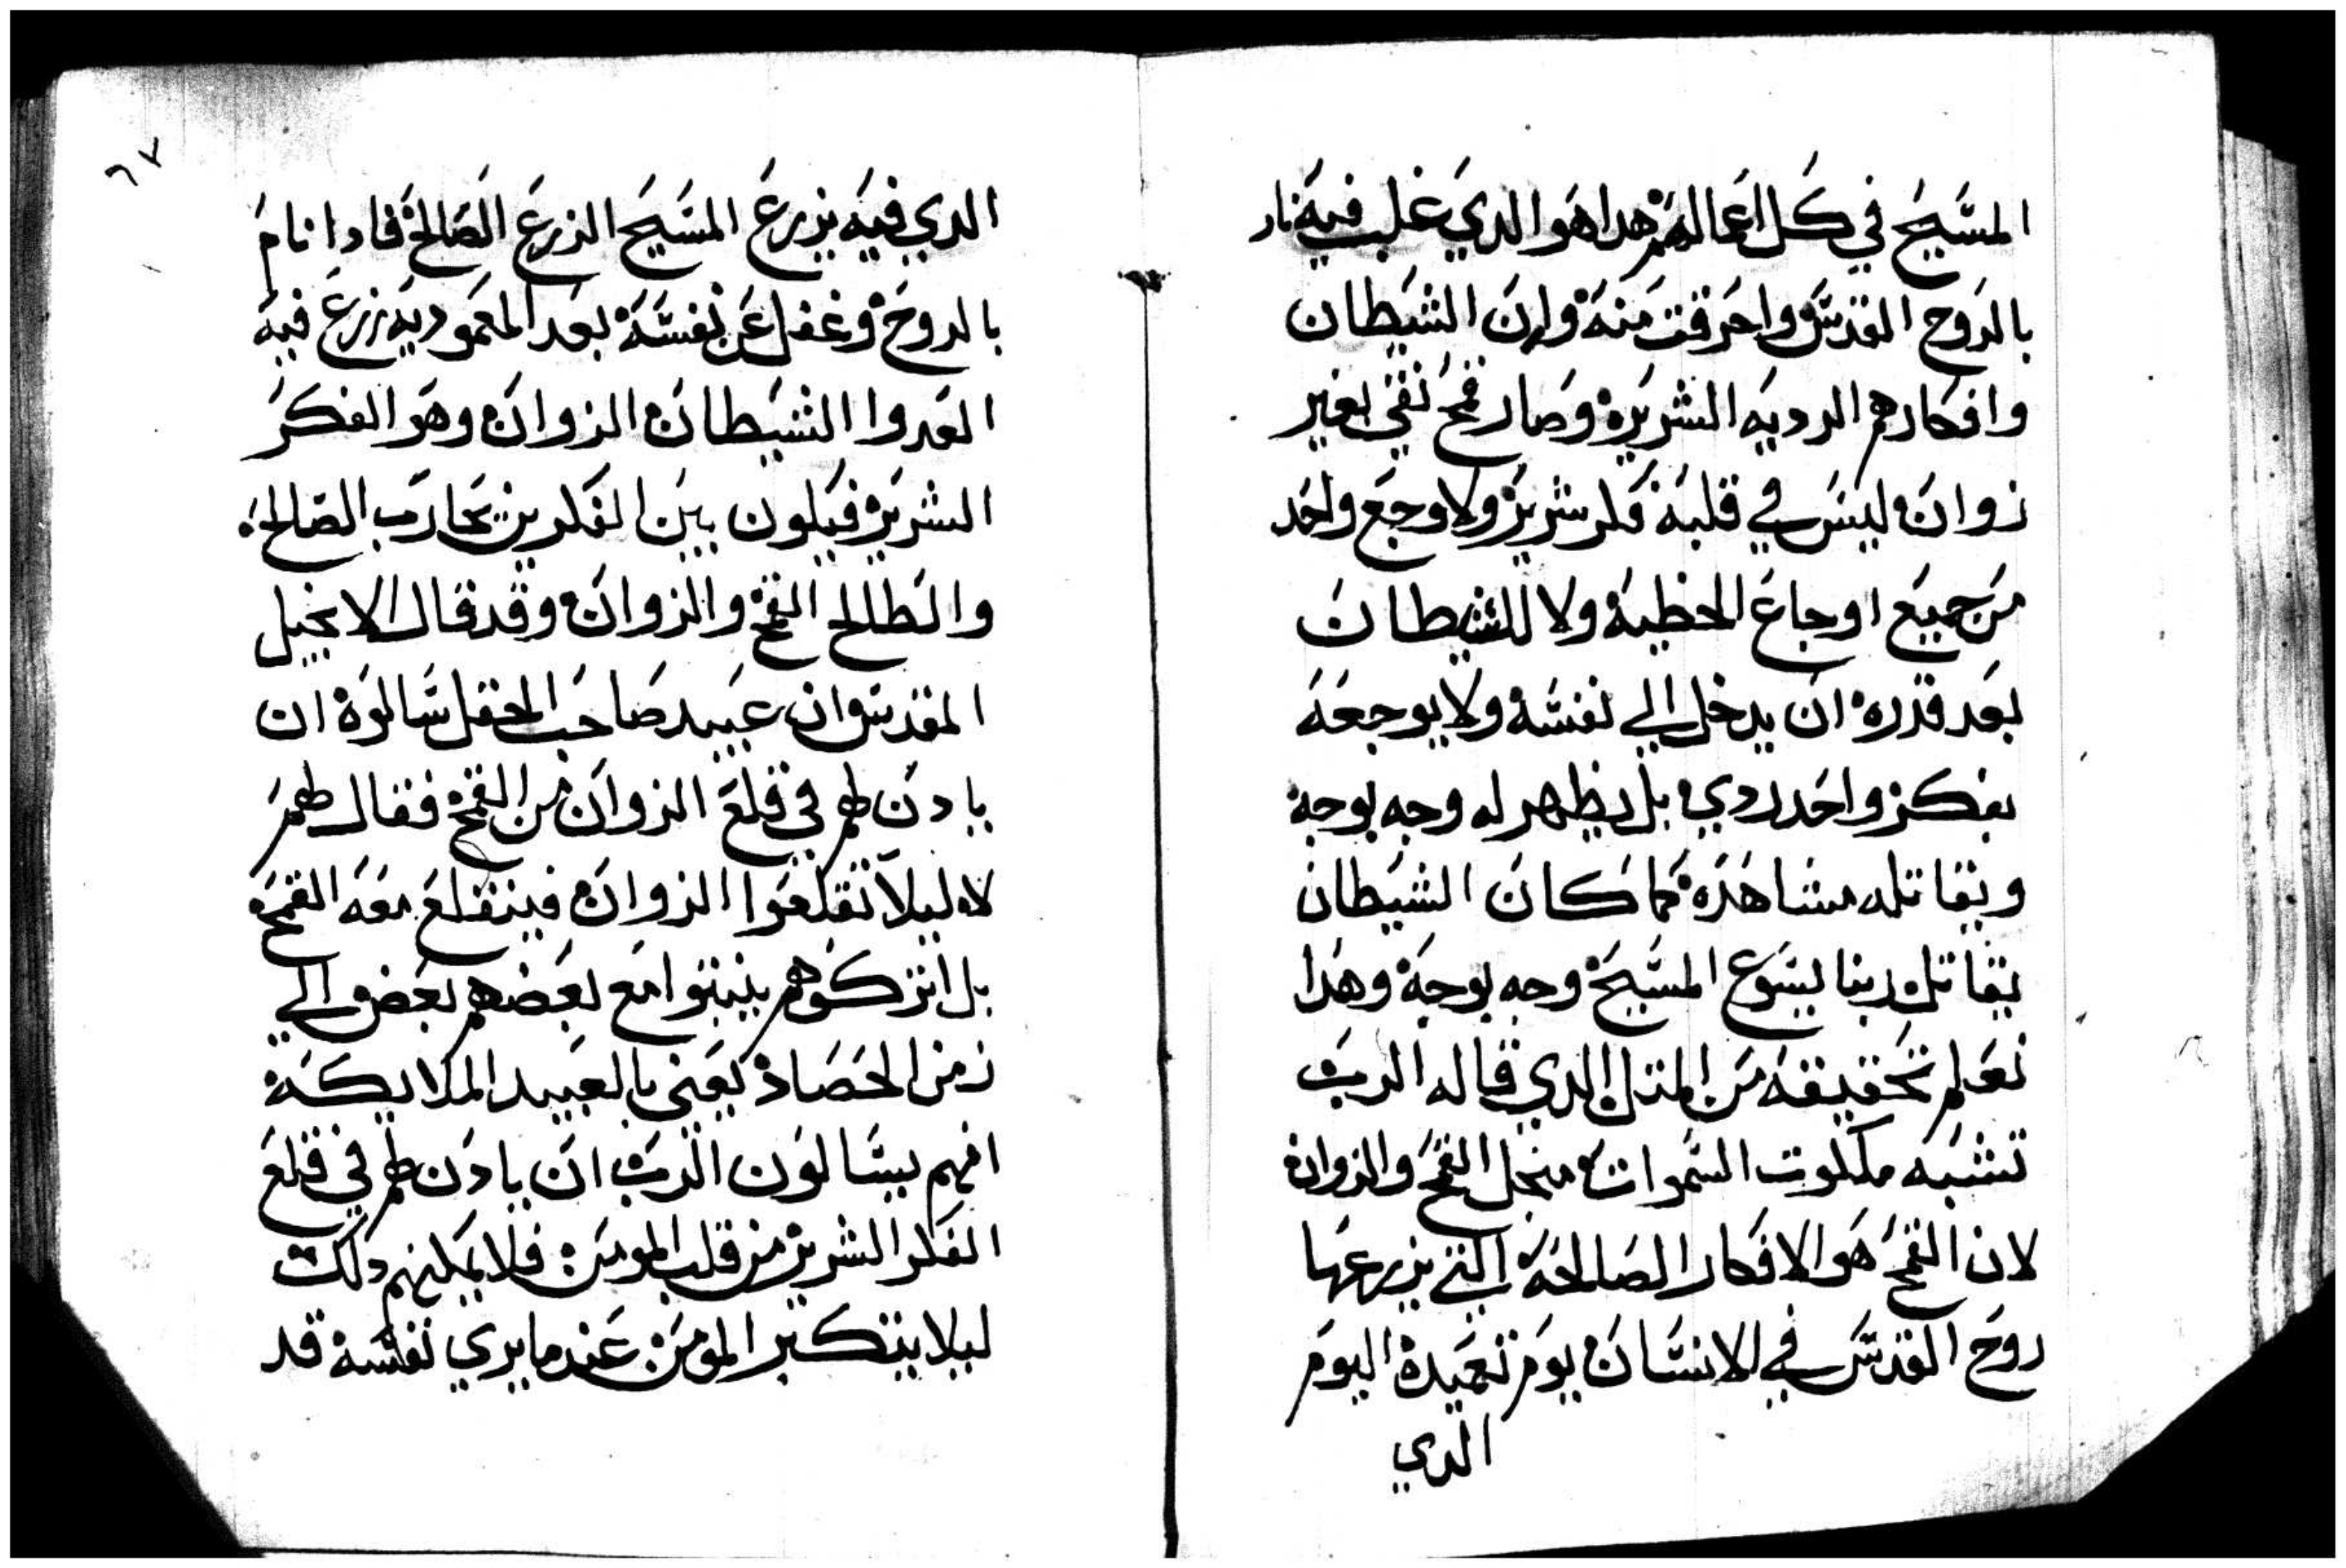 المسيح في كل اعمالهم هدا هو الدي غلب فيه نار
بالروح القدس واحرقت منه وان الشيطان
وافكارهم الرديه الشريره وصار قمح نقي بغير
زوان ليس في قلبه فكر شرير ولا وجع واحد
من جميع اوجاع الخطيه ولا للشيطان
بعد قدره ان يدخل الي نفسه ولا يوجعه
بفكر واحد ردي بل يظهر له وجه بوجه
ويقاتله مشاهده كما كان الشيطان
يقاتل ربنا يسوع المسيح وجه بوجه وهدا
نعلم تحقيقه من المتل الدي قاله الرب
تشبه ملكوت السموات منجل القمح والزوان
لان القمح هو الافكار الصالحه التي يزرعها
روح القدس في الانسان يوم تعميده اليوم
الدي
٦٧
الدي فيه يزرع المسيح الزرع الصالح فادا نام
بالروح وغفل عن نفسه بعد المعموديه زرع فيه
العدوا الشيطان الزوان وهو الفكر
الشرير فيكون بين الفكرين تحارب الصالح
والطالح القمح والزوان وقد قال الانجيل
المقدس ان عبيد صاحب الحقل سالوه ان
يادن لهم في قلع الزوان من القمح فقال لهم
لا ليلا تقلعوا الزوان فينقلع معه القمح
بل اتركوهم ينبتوا مع بعضهم بعض الي
زمن الحصاد يعني بالعبيد الملايكه
انهم يسالون الرب ان يادن لهم في قلع
الفكر الشرير من قلب المومن فلا يمكنهم دلك
ليلا يتكبر المومن عندما يري نفسه قد